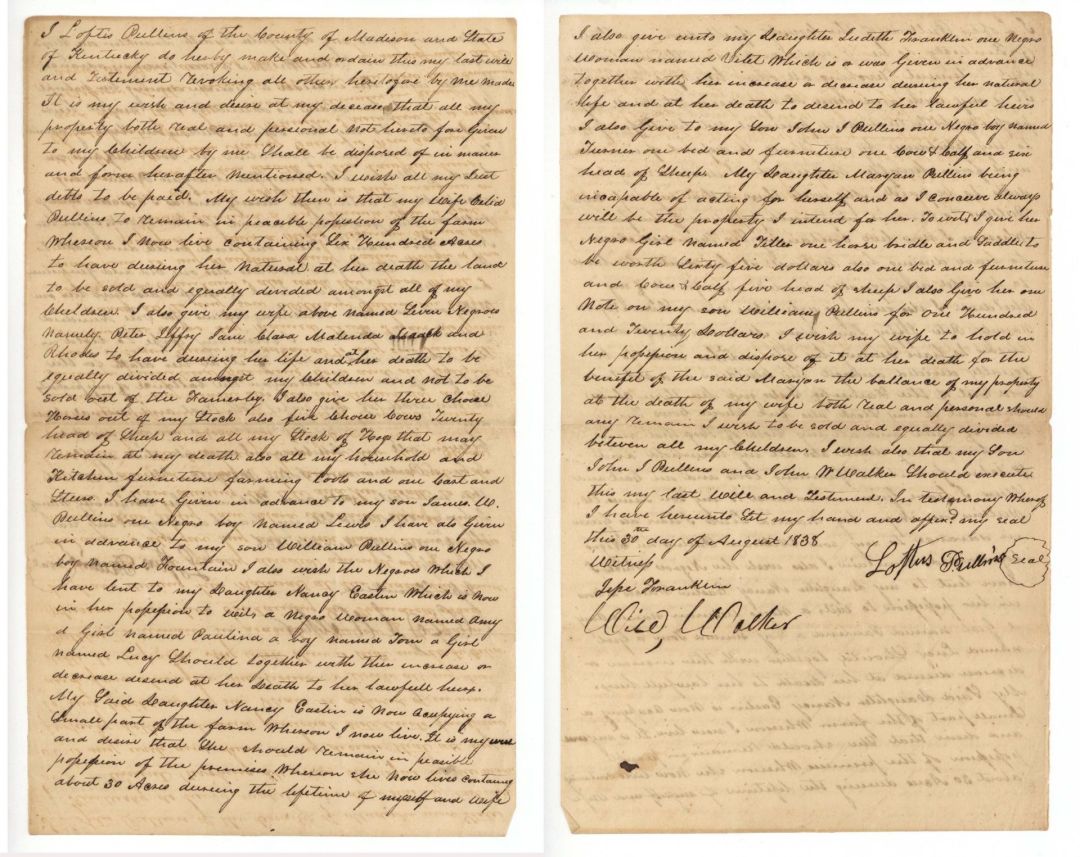 I Loftis Pullins of the County of Madison and State
of Kentucky do herby make and ordain this my last will
and Testement Revoking all other heritofore by me made
It is my wish and desire at my decease that all my
property both real and personal not hereto fore Given
to my Children by me Shall be disposed of in maner
and form herafter mentioned. I wish all my Just
debts to be paid. My wish then is that my Wife Celia
Pullins to remain in peacible possession of the farm
Whereon I now live containing Six Hundred Acres
to have dureing her Natural at her death the land
to be sold and equally divided amongst all of my
Children. I also give my wife above named Seven Negroes
Namely. Peter Jane Clara Malenda and
Rhodes to have dureing her life and at her death to be
equally divided amongst my Children and not to be
sold out of the Famerley. I also give her three choice
Horses out of my Stock also five Choice Cows Twenty
head of Sheep and all my Stock of Hogs that may
remain at my death also all my household and
Kitchen furniture farming tools and one Cart and
Steers. I have Given in advance to my son James. W.
Pullins one Negro boy Named Lewis I have als Given
in advance to my son William Pullins one Negro
boy Named Fountain I also wish the Negroes Which I
have lent to my Daughter Nancy Eastin Which is Now
in her possession to wit a Negro Woman named Amy
a Girl named Paulina a boy named Tom a Girl
named Lucy Should together with ther increase or
decrease desend at her Death to her lawfull heirs.
My Said Daughter Nancy Eastin is Now ocupying a
Small part of the farm Whereon I now live. It is my
and desire that She should remain in peasible
possession of the premises Whereon she Now lives containing
about 30 Acres dureing the lifetime of myself and Wife
I also give unto my Daughter Judith Franklin one Negro
Woman named Vilet Which is or was Given in advance
together with her increase or decrease dureing her natural
life and at her death to desend to her lawful heirs
I also Give to my Son John I Pullins one Negro boy named
Turner one bed and furniture one Cow & Calf and six
head of Sheep. My Daughter Maryan Pullins being
incapable of acting for herself and as I conceive always
will be the property I intend for her. To wit, I give her
Negro Girl Named one horse bridle and Saddle to
be worth Sixty five dollars also one bed and furniture
and Cow & Calf five head of sheep I also Give her one
Note on my son William Pullins for one Hundred
and Twenty Dollars I wish my wife to hold in
her possession and dispose of it at her death for the
benifit of the said Maryan the ballance of my property
at the death of my wife both real and personal should
any remain I wish to be sold and equally divided
between all my Children. I wish also that my Son
John I Pullins and John W Walker Should execute
this my last Will and Testiment. In testimony Whereof
I have hereunto Set my hand and affixd my seal
this 30th day of August 1838
Loftus Pullins Seal
Witness
Jesse Franklin
Walker